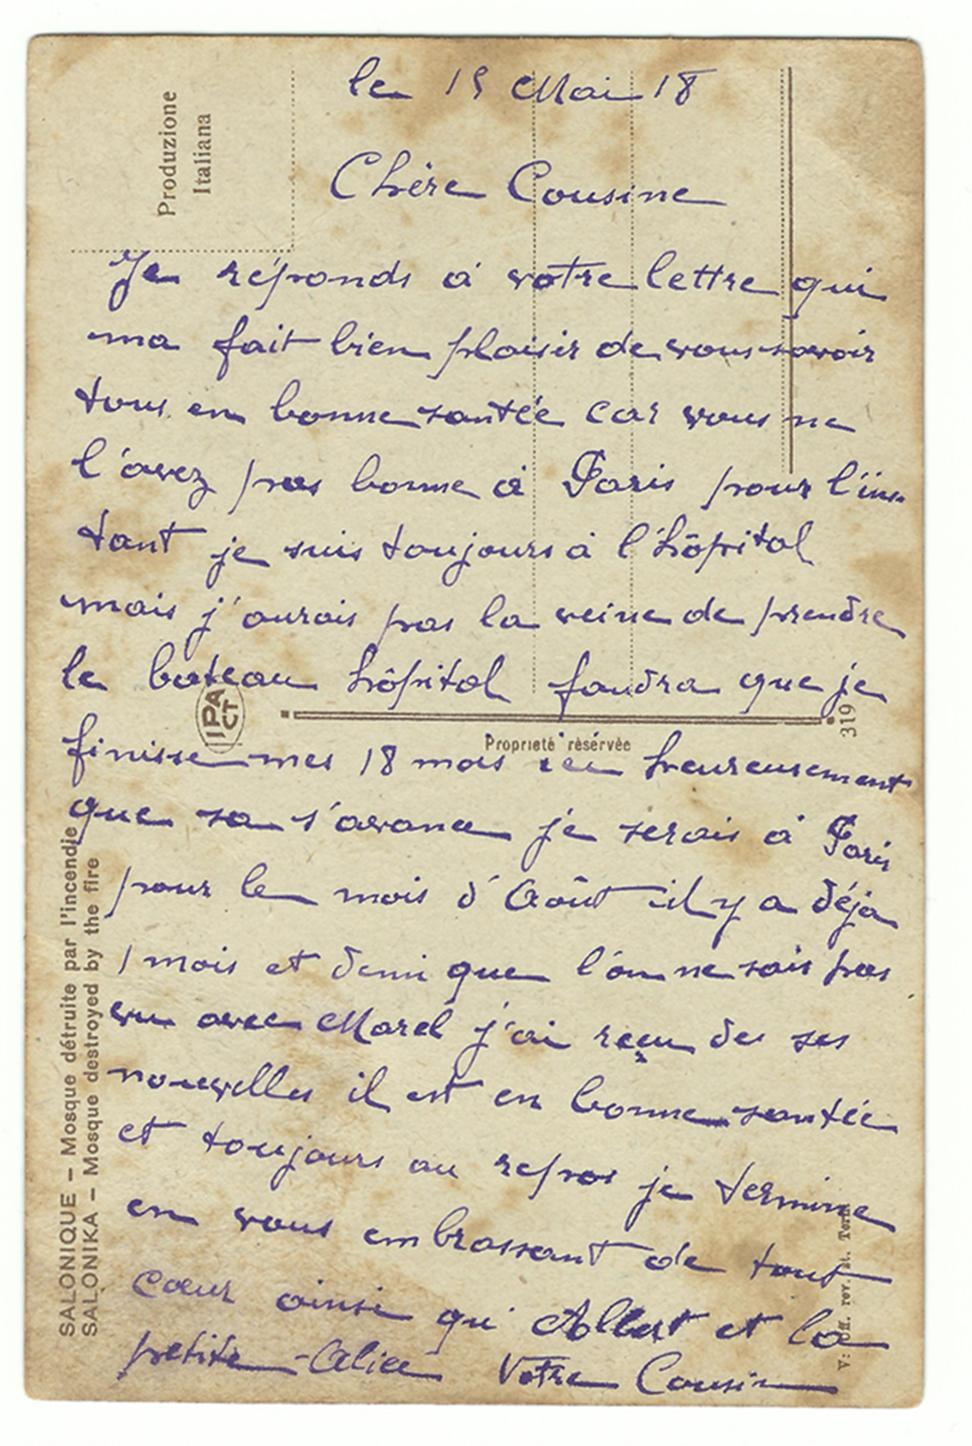 le 15 Mai 18
Chère Cousine
Je réponds à votre lettre qui
ma fait bien plaisir de vous savoir
tous en bonne santée car vous ne
l'avez pas bonne à Paris pour l'ins-
tant je suis toujours à l'hôpital
mais j'aurais pas la veine de prendre
le bateau hôpital faudra que je
finisse mes 18 mois heureusement
que sa s'avance je serais à Paris
pour le mois d'Août il y a déjà
1 mois et demi que l'on ne sais pas
vu avec Marcel j'ai reçu de ses
nouvelles il est en bonne santée
et toujours au repos je termine
en vous embrassant de tout
cœur ainsi qu'Albert et la
petite Alice Votre Cousin
Produzione
Italiana
IPA CT
Proprieté résérvée
319
SALONIQUE – Mosque détruite par l'incendie
SALONIKA – Mosque destroyed by the fire
V: Uff. rev. st. Terni